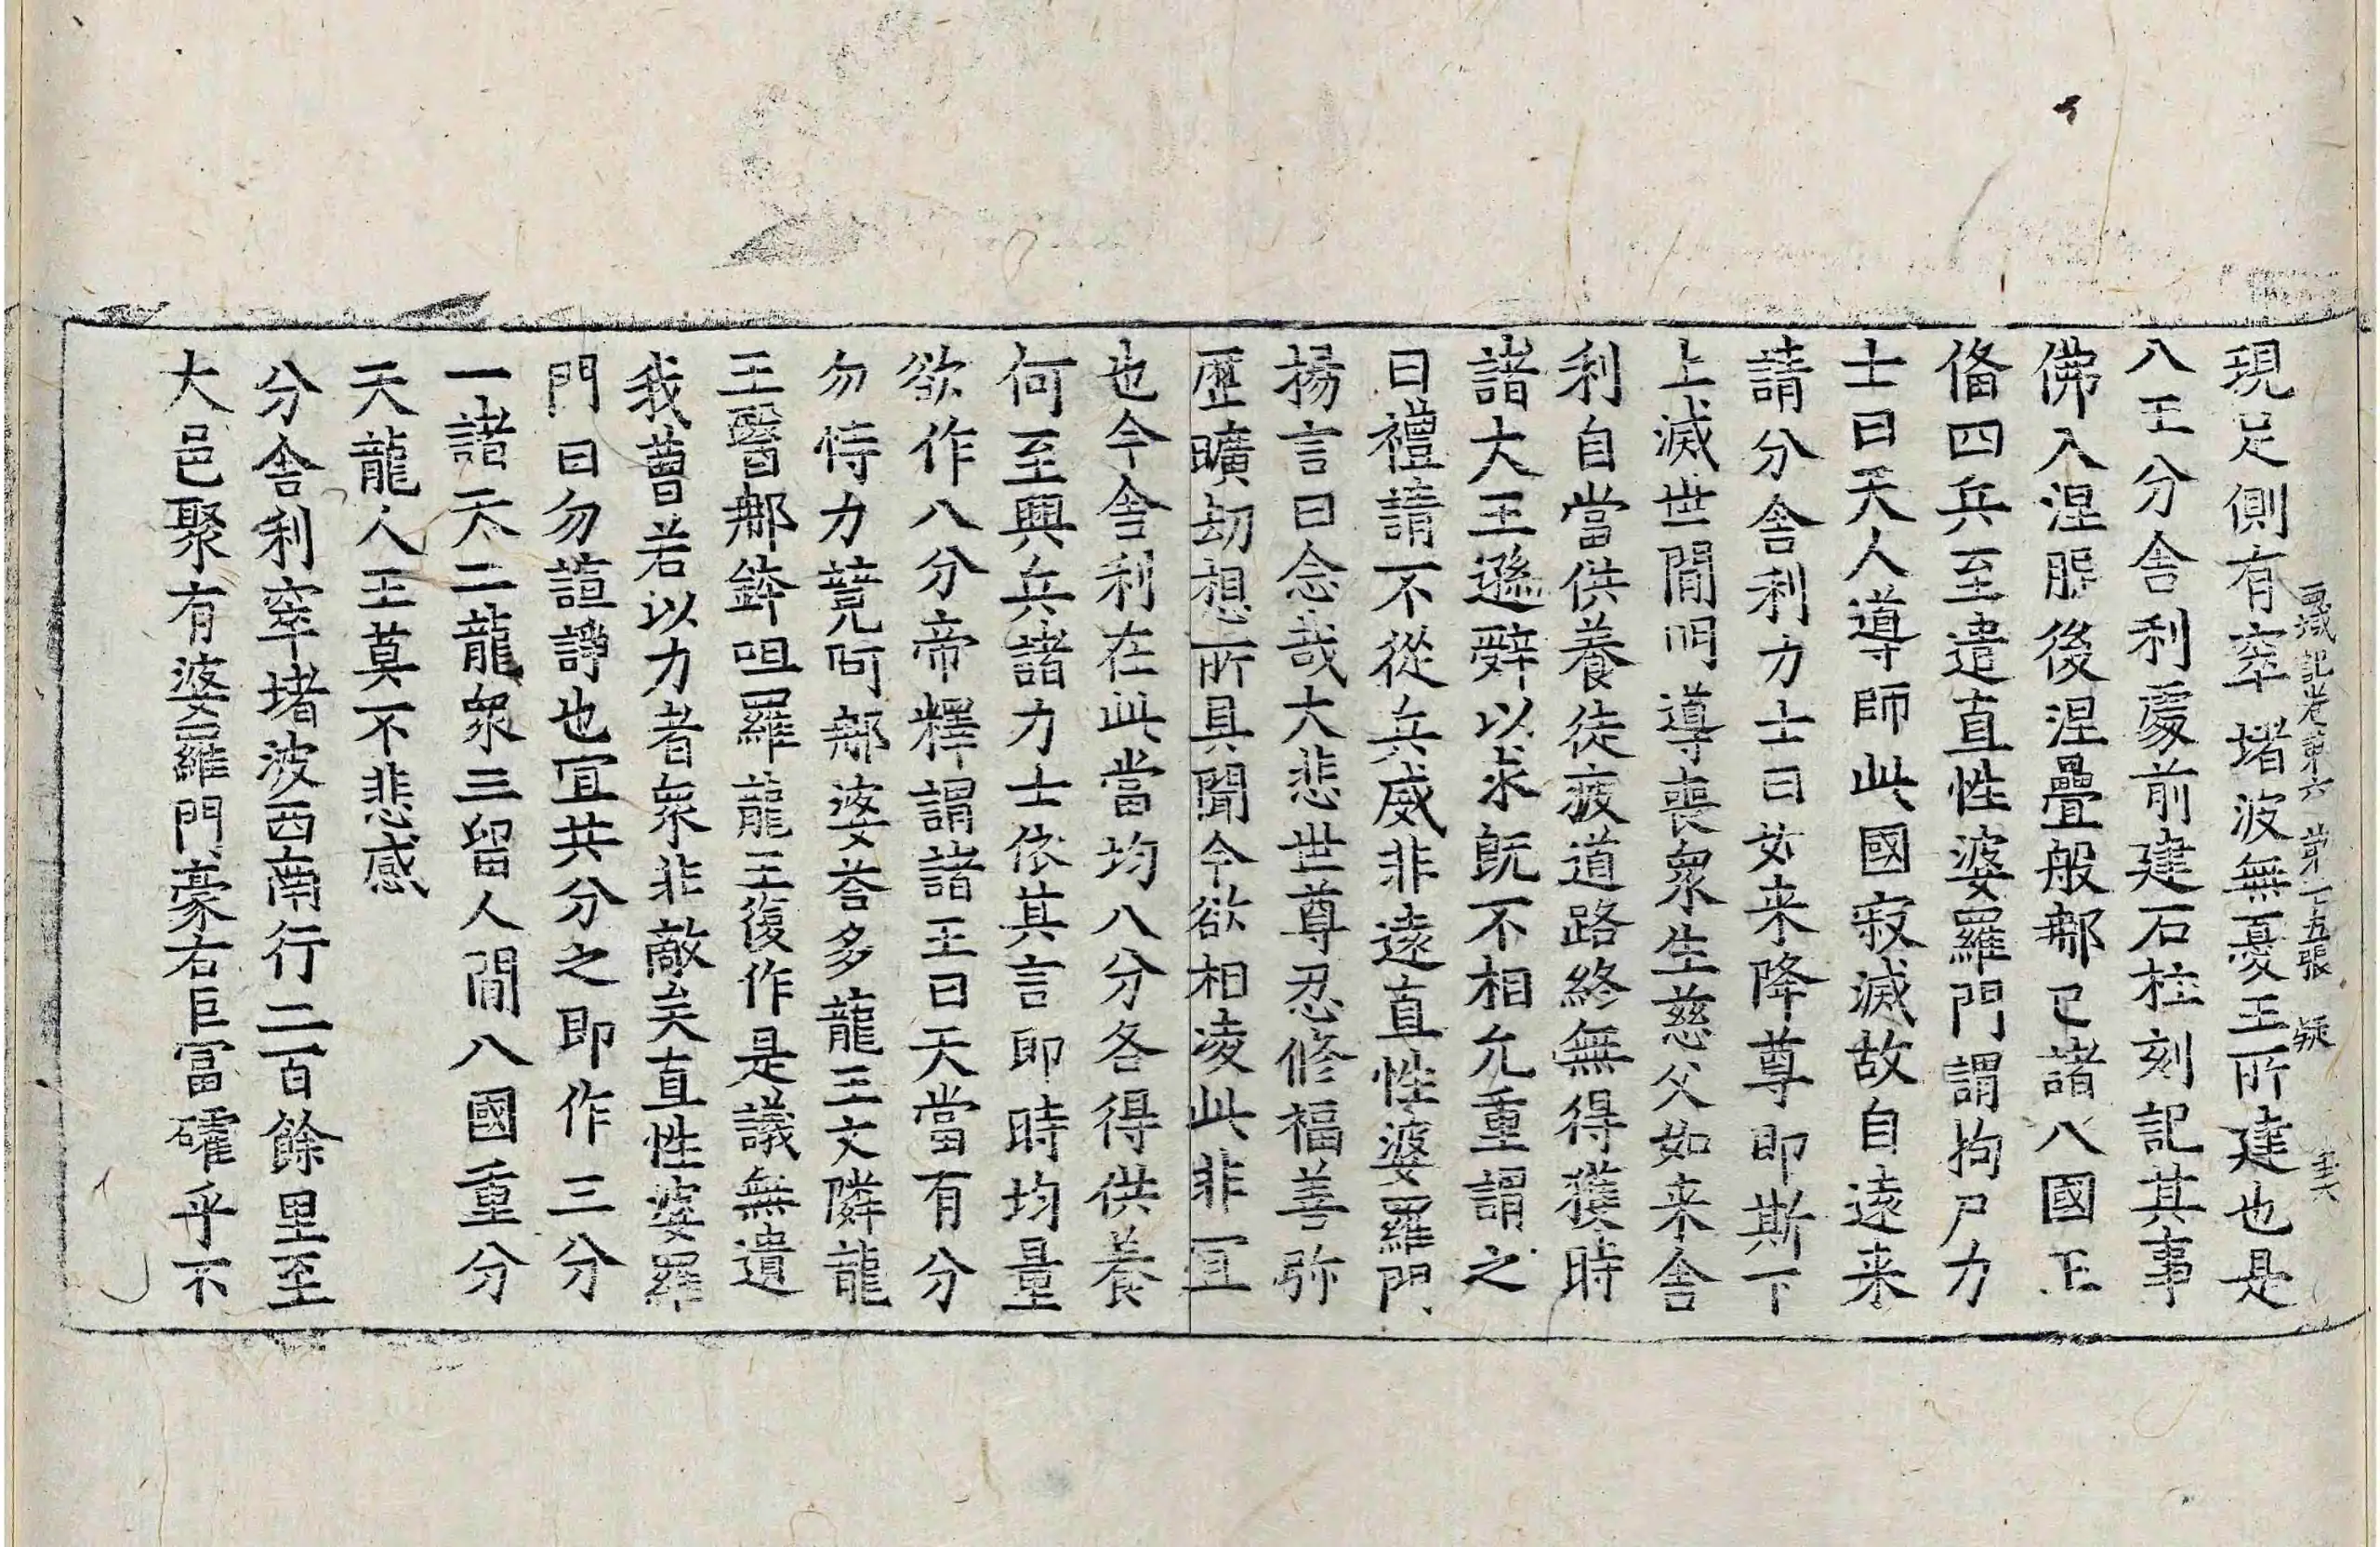 西域記卷第六 第二十五張 疑
現足側有窣堵波無憂王所建也是
八王分舍利處前建石柱刻記其事
佛入涅槃後涅疊般那已諸八國王
俻四兵至遣直性婆羅門謂拘尸力
士曰天人導師此國寂滅故自遠来
請分舍利力士曰如来降尊即斯下
土滅世間明導喪衆生慈父如来舍
利自當供養徒疲道路終無得獲時
諸大王遜辤以求既不相允重謂之
曰禮請不從兵威非遠直性婆羅門
揚言曰念哉大悲世尊忍修福善弥
歷曠劫想所具聞今欲相凌此非冝
也今舍利在此當均八分各得供養
何至興兵諸力士依其言即時均量
欲作八分帝釋謂諸王曰天當有分
勿恃力競阿那婆荅多龍王文隣龍
王醫那鉢呾羅龍王復作是議無遺
我曹若以力者衆非敵矣直性婆羅
門曰勿諠諍也冝共分之即作三分
一諸天二龍衆三留人間八國重分
天龍人王莫不悲感
分舍利窣堵波西南行二百餘里至
大邑聚有婆羅門豪右巨冨確乎不